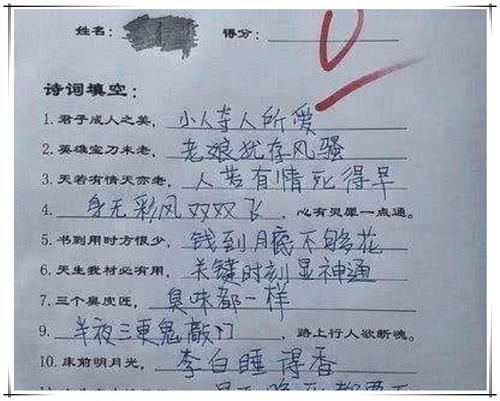 姓名： 得分： 0
诗词填空：
1. 君子成人之美， 小人夺人所爱
2. 英雄宝刀未老， 老娘犹存风骚
3. 天若有情天亦老， 人若有情死得早
4. 身无彩凤双双飞 ，心有灵犀一点通。
5. 书到用时方恨少， 钱到月底不够花
6. 天生我材必有用， 关键时刻显神通
7. 三个臭皮匠， 臭味都一样
9. 半夜三更鬼敲门 ，路上行人欲断魂。
10. 床前明月光， 李白睡得香